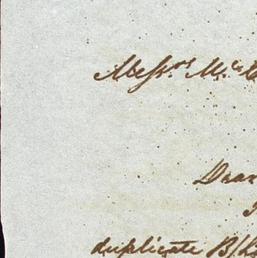 Messrs. Mc
Dear
duplicate B/L